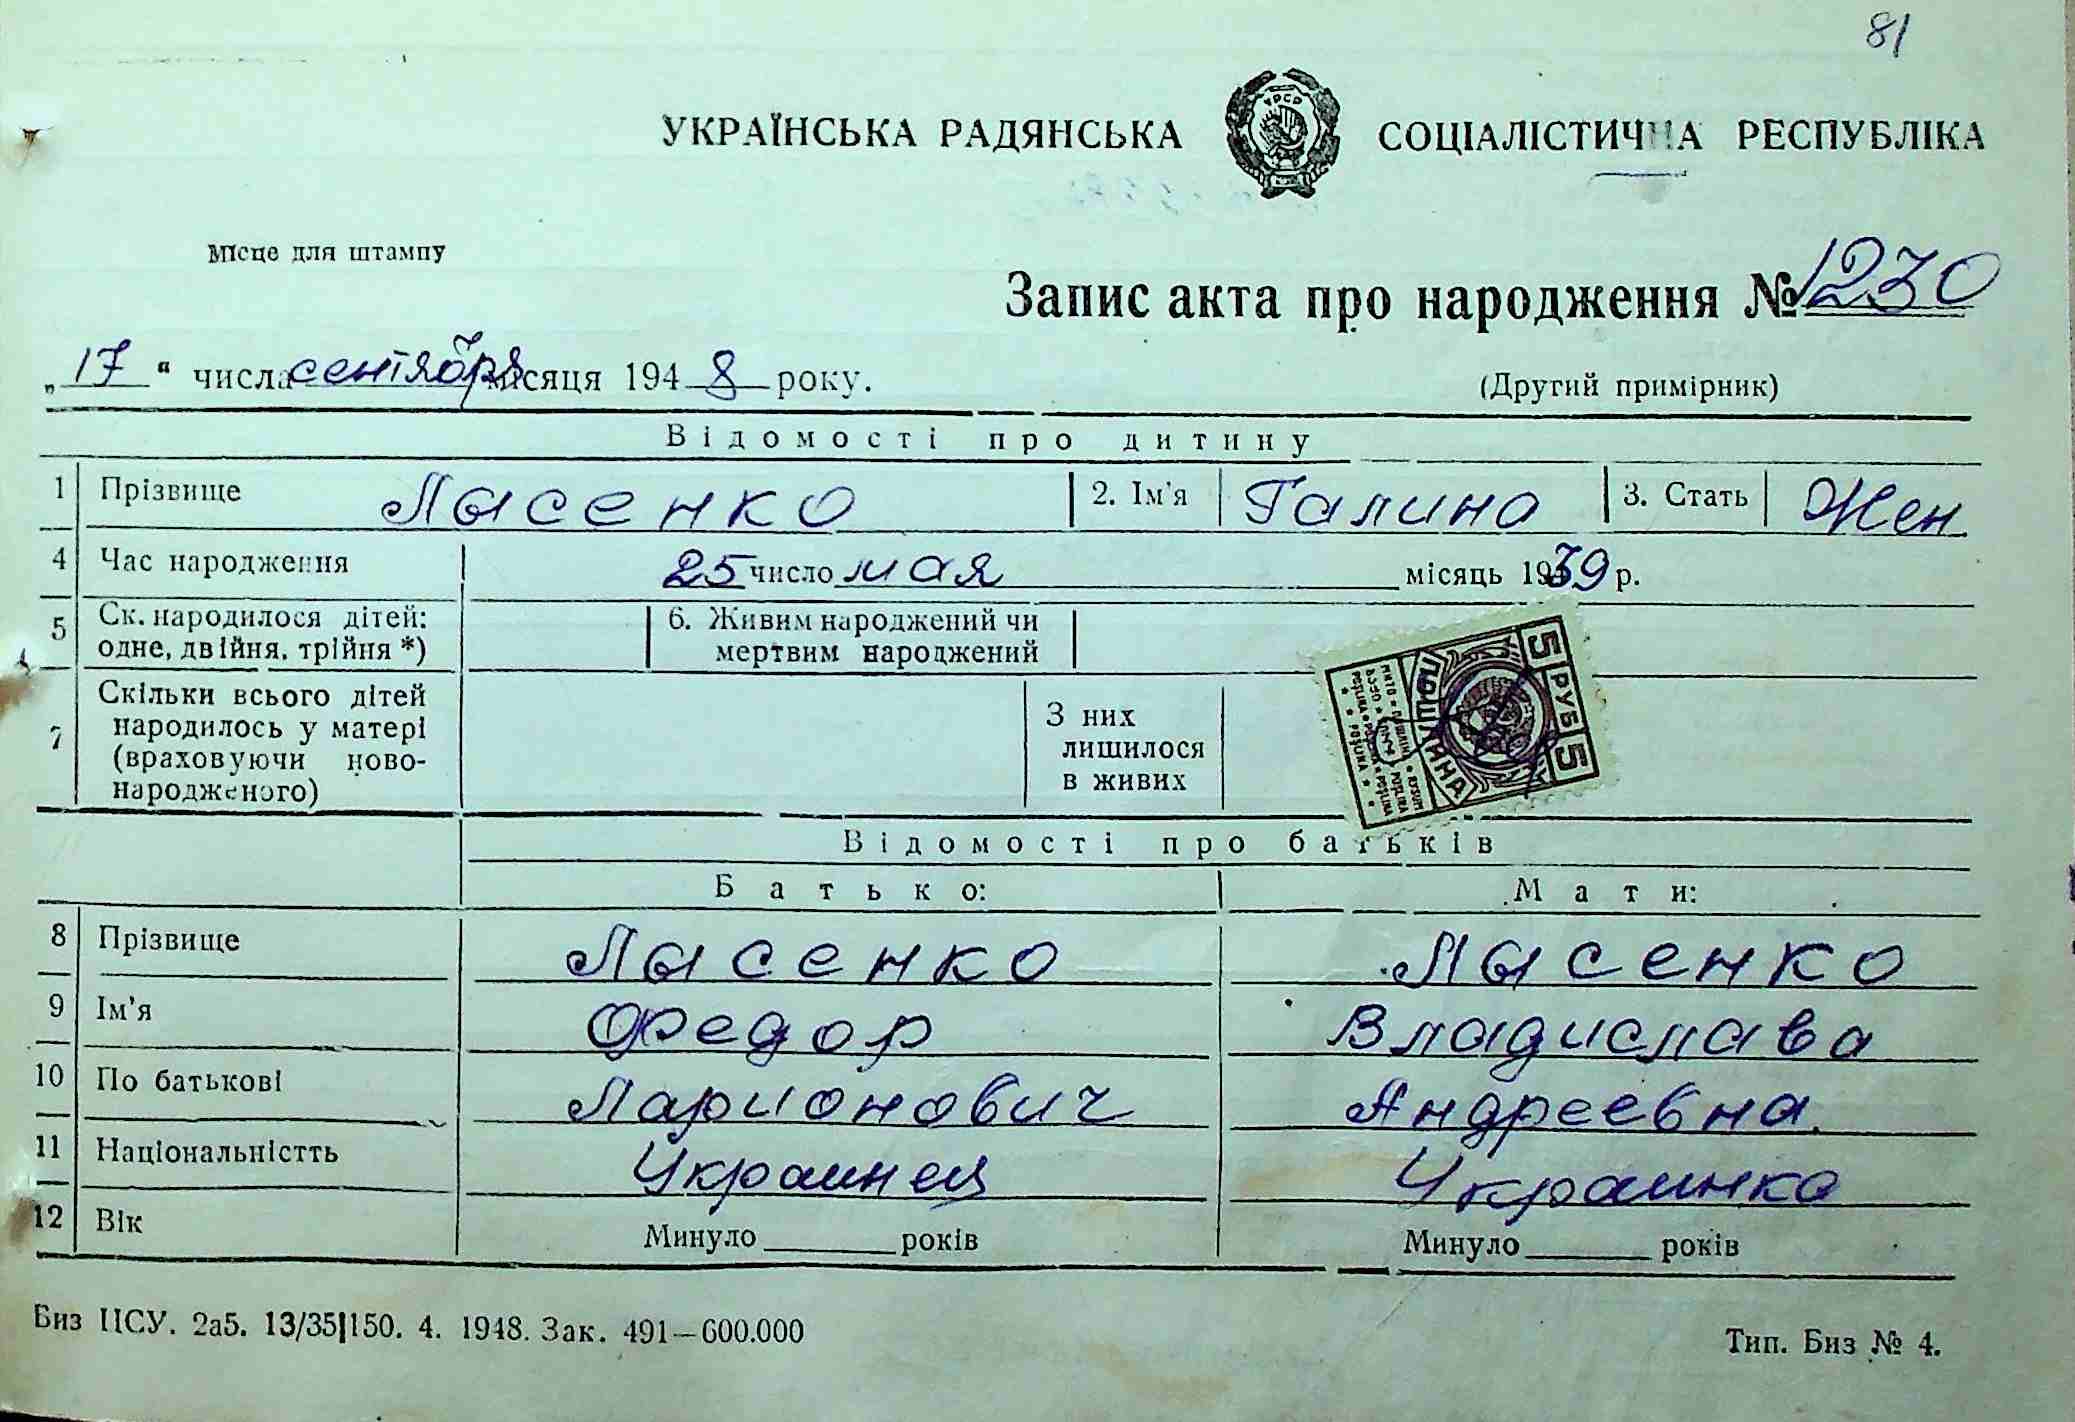 81
УКРАЇНСЬКА РАДЯНСЬКА СОЦІАЛІСТИЧНА РЕСПУБЛІКА
Місце для штампу
Запис акта про народження № 1230
„17“ числа сентября місяця 1948 року.
(Другий примірник)
Відомості про дитину
1 Прізвище Лысенко 2. Ім'я Галина 3. Стать Жен
4 Час народження 25 число мая місяць 1939 р.
5 Ск. народилося дітей: одне, двійня, трійня *) 6. Живим народжений чи мертвим народжений
7 Скільки всього дітей народилось у матері (враховуючи ново-народженого) З них лишилося в живих
5 РУБ 5
Відомості про батьків
Батько: Мати:
8 Прізвище Лысенко Лысенко
9 Ім'я Федор Владислава
10 По батькові Ларионович Андреевна
11 Національністть Украинец Украинка
12 Вік Минуло ____ років Минуло ____ років
Биз ЦСУ. 2а5. 13/35|150. 4. 1948. Зак. 491—600.000
Тип. Биз № 4.